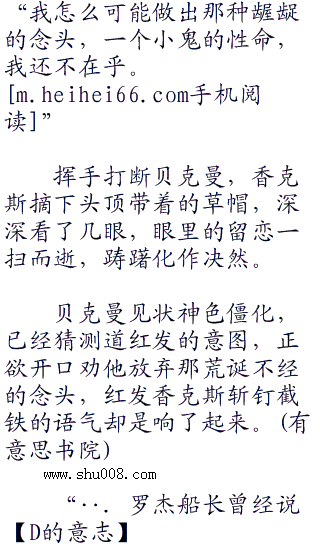 “我怎么可能做出那种龌龊
的念头，一个小鬼的性命，
我还不在乎。
[m.heihei66.com手机阅
读]”
挥手打断贝克曼，香克
斯摘下头顶带着的草帽，深
深看了几眼，眼里的留恋一
扫而逝，踌躇化作决然。
贝克曼见状神色僵化，
已经猜测道红发的意图，正
欲开口劝他放弃那荒诞不经
的念头，红发香克斯斩钉截
铁的语气却是响了起来。(有
意思书院)
www.shu008.com
“··．罗杰船长曾经说
【D的意志】